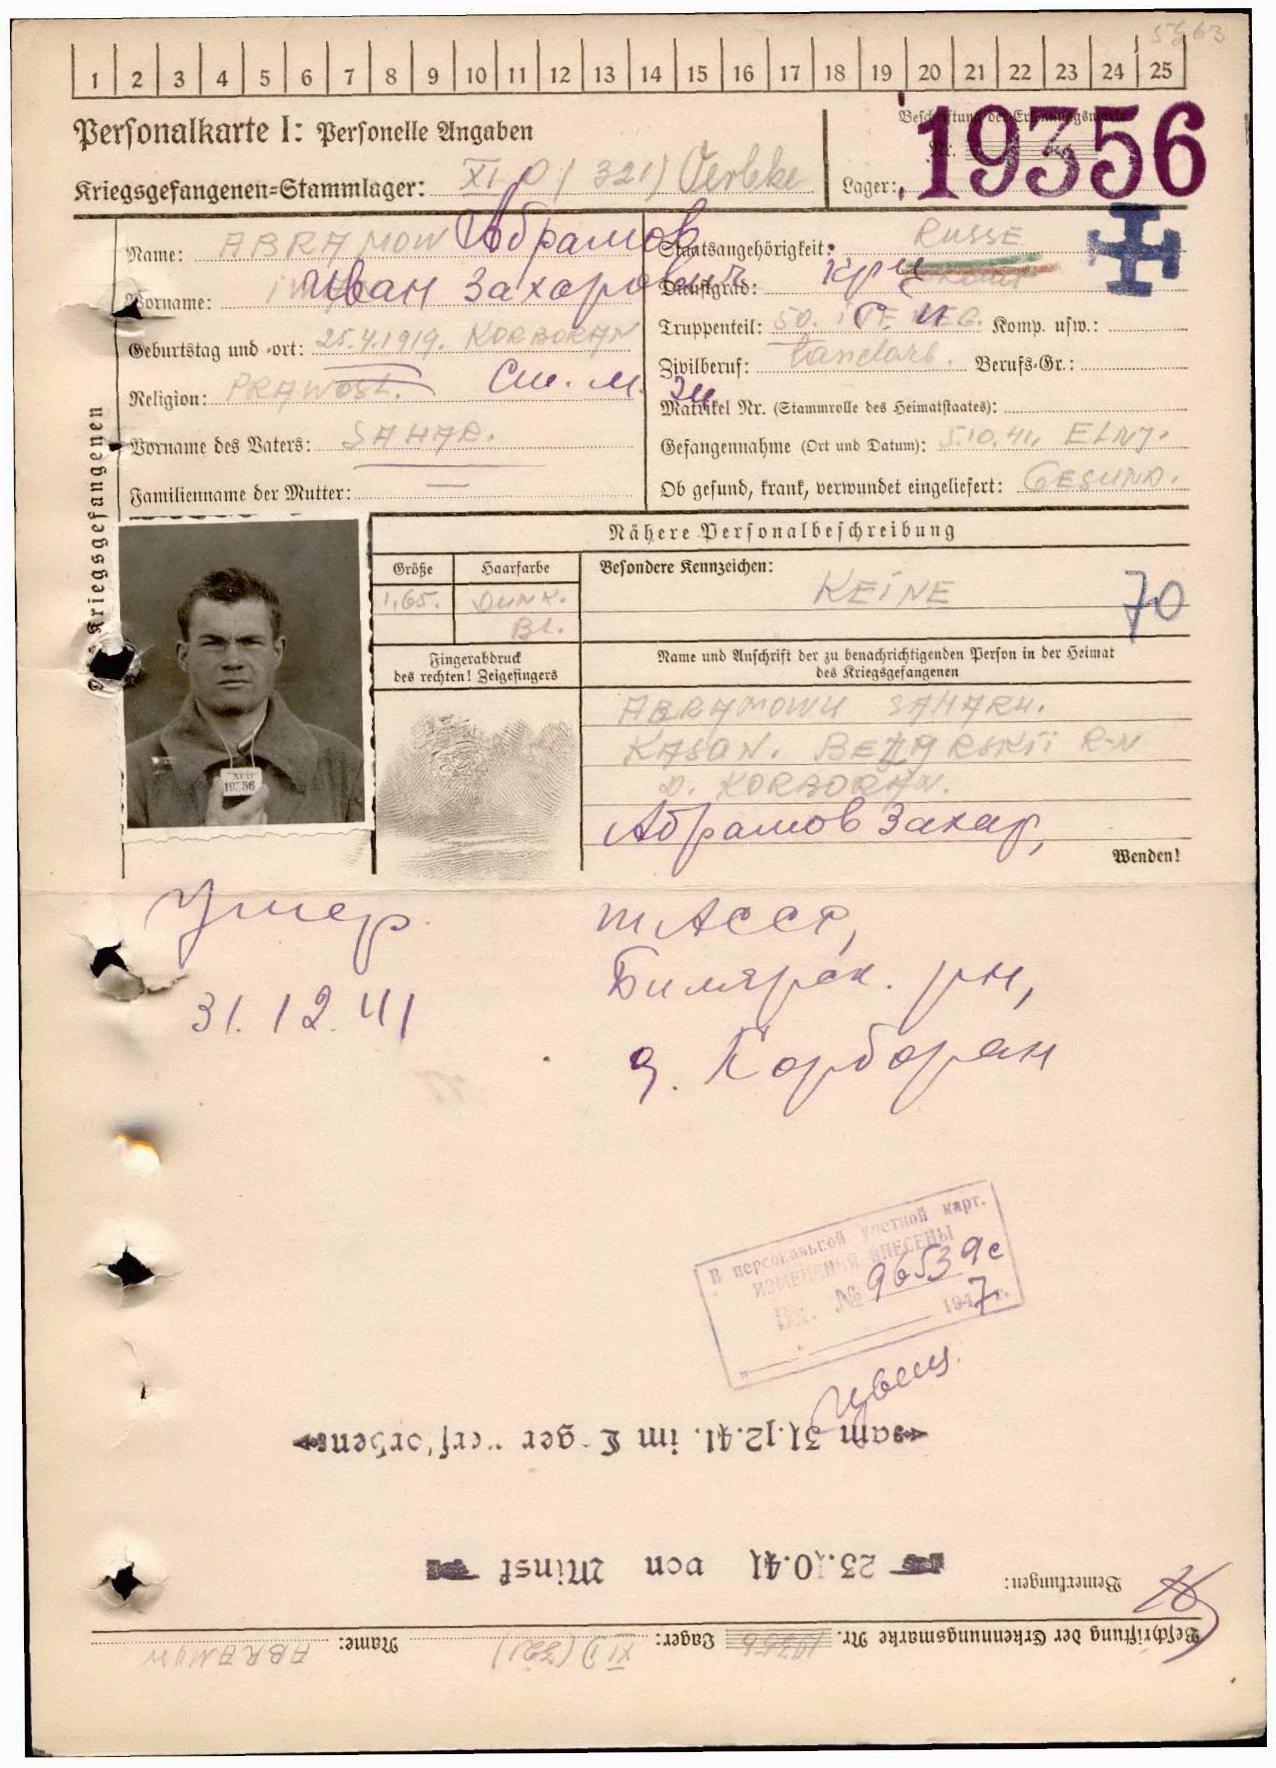 5763
1 2 3 4 5 6 7 8 9 10 11 12 13 14 15 16 17 18 19 20 21 22 23 24 25
Personalkarte I: Personelle Angaben
Kriegsgefangenen=Stammlager: XI D (321) Oerbke
Beschriftung der Erkennungsmarke
Nr. 19356
Lager:
Name: ABRAMOW Абрамов
Vorname: Иван Захарович
Geburtstag und -ort: 25.4.1919. KORBORAN
Religion: PRAWOSL. См. м.
Vorname des Vaters: SAHAR.
Familienname der Mutter: —
Staatsangehörigkeit: RUSSE
Dienstgrad:
Truppenteil: 50. Komp. usw.:
Zivilberuf: Landarb. Berufs-Gr.:
Matrikel Nr. (Stammrolle des Heimatstaates):
Gefangennahme (Ort und Datum): 5.10.41, ELNJ.
Ob gesund, krank, verwundet eingeliefert: GESUND.
Kriegsgefangenen
Nähere Personalbeschreibung
Größe Haarfarbe Besondere Kennzeichen:
1,65. DUNK. KEINE 70
BL.
Fingerabdruck
des rechten! Zeigefingers
Name und Anschrift der zu benachrichtigenden Person in der Heimat
des Kriegsgefangenen
ABRAMOWU SAHARU.
KASAN. R-N
D. KORBORAN.
Абрамов Захар,
Wenden!
Умер
31.12.41
тАССР,
Билярск. рн,
д. Корборан
В персональной учетной карт.
ИЗМЕНЕНИЯ ВНЕСЕНЫ
Вх. № 96539с
1947г.
am 31.12.41. im Lager verstorben
23.10.41 von Minsk
Bemerkungen:
Beschriftung der Erkennungsmarke Nr. 19356 Lager: XI D (321) Name: ABRAMOW